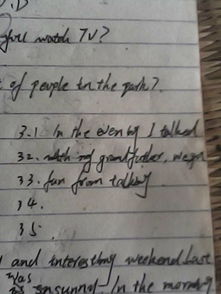 you watch TV?
of people in the park?
3.1 In the evening I talked
32. with my grandfather, we
33. fun from talking
34.
35.
and interesting weekend Last
was
sunny In the morning